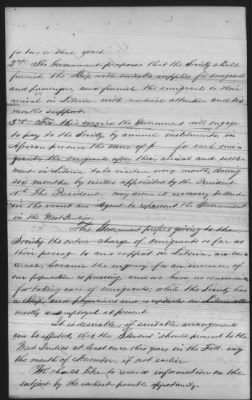 for two or three years.
2nd The Government proposes that the Society shall
furnish the Ship with suitable supplies for emigrants
and passengers and furnish the emigrants on their
arrival in Liberia with medical attention and six
months support.
3rd For this service the Government will engage
to pay to the Society by annual instalments, in
African produce the sum of $ for each emi-
grant, the emigrants after their arrival and settle-
ment in Liberia to be visited every month, during
six months, by visitors appointed by the President
4th The President may deem it necessary to send
in the vessel an Agent to represent the Government
in the West Indies.
The Government prefers giving to the
Society the entire charge of emigrants so far as
their passage to and support in Liberia are con-
cerned, because the urgency for an increase of
our population is pressing and we have no means
for taking care of emigrants, while the Society has
a Ship, and physicians and receptacles in Liberia
mostly unemployed at present.
It is desirable, if suitable arrangements
can be effected, that the Steward should proceed to the
West Indies at least once this year in the Fall, say
the month of November, if not earlier.
We should like to receive information on the
subject by the earliest possible opportunity.